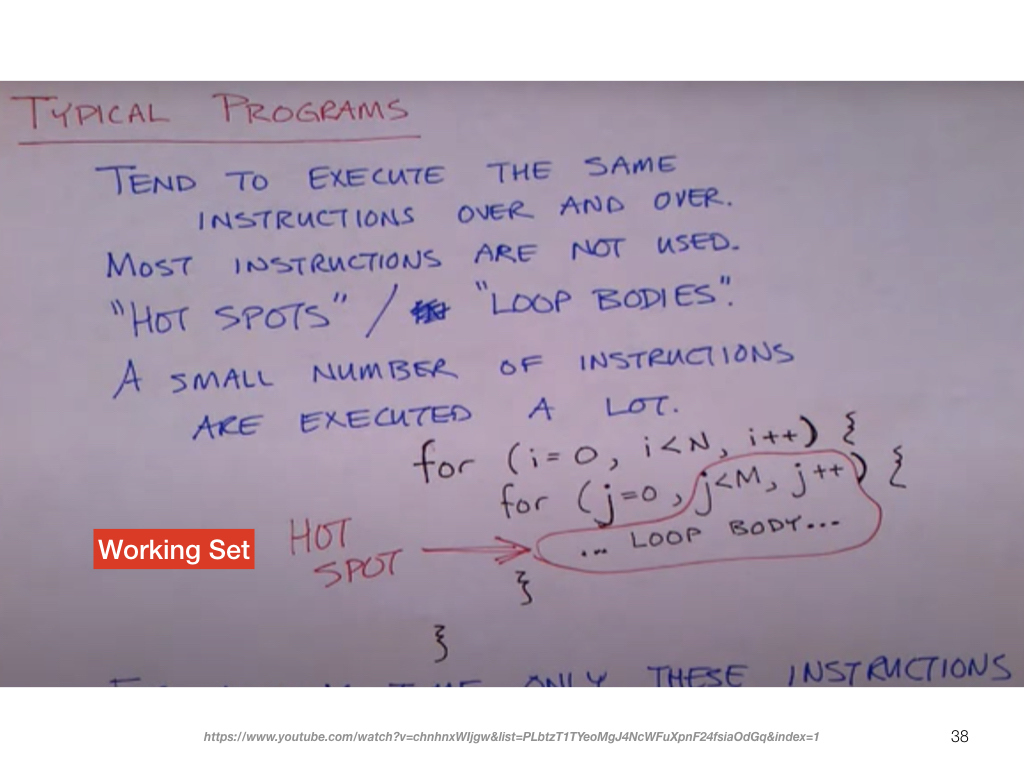 TYPICAL PROGRAMS
TEND TO EXECUTE THE SAME
INSTRUCTIONS OVER AND OVER.
MOST INSTRUCTIONS ARE NOT USED.
"HOT SPOTS" / "LOOP BODIES".
A SMALL NUMBER OF INSTRUCTIONS
ARE EXECUTED A LOT.
for (i=0, i<N, i++) {
for (j=0, j<M, j++) {
... LOOP BODY...
Working Set
HOT
SPOT
}
}
ONLY THESE INSTRUCTIONS
https://www.youtube.com/watch?v=chnhnxWIjgw&list=PLbtzT1TYeoMgJ4NcWFuXpnF24fsiaOdGq&index=1
38